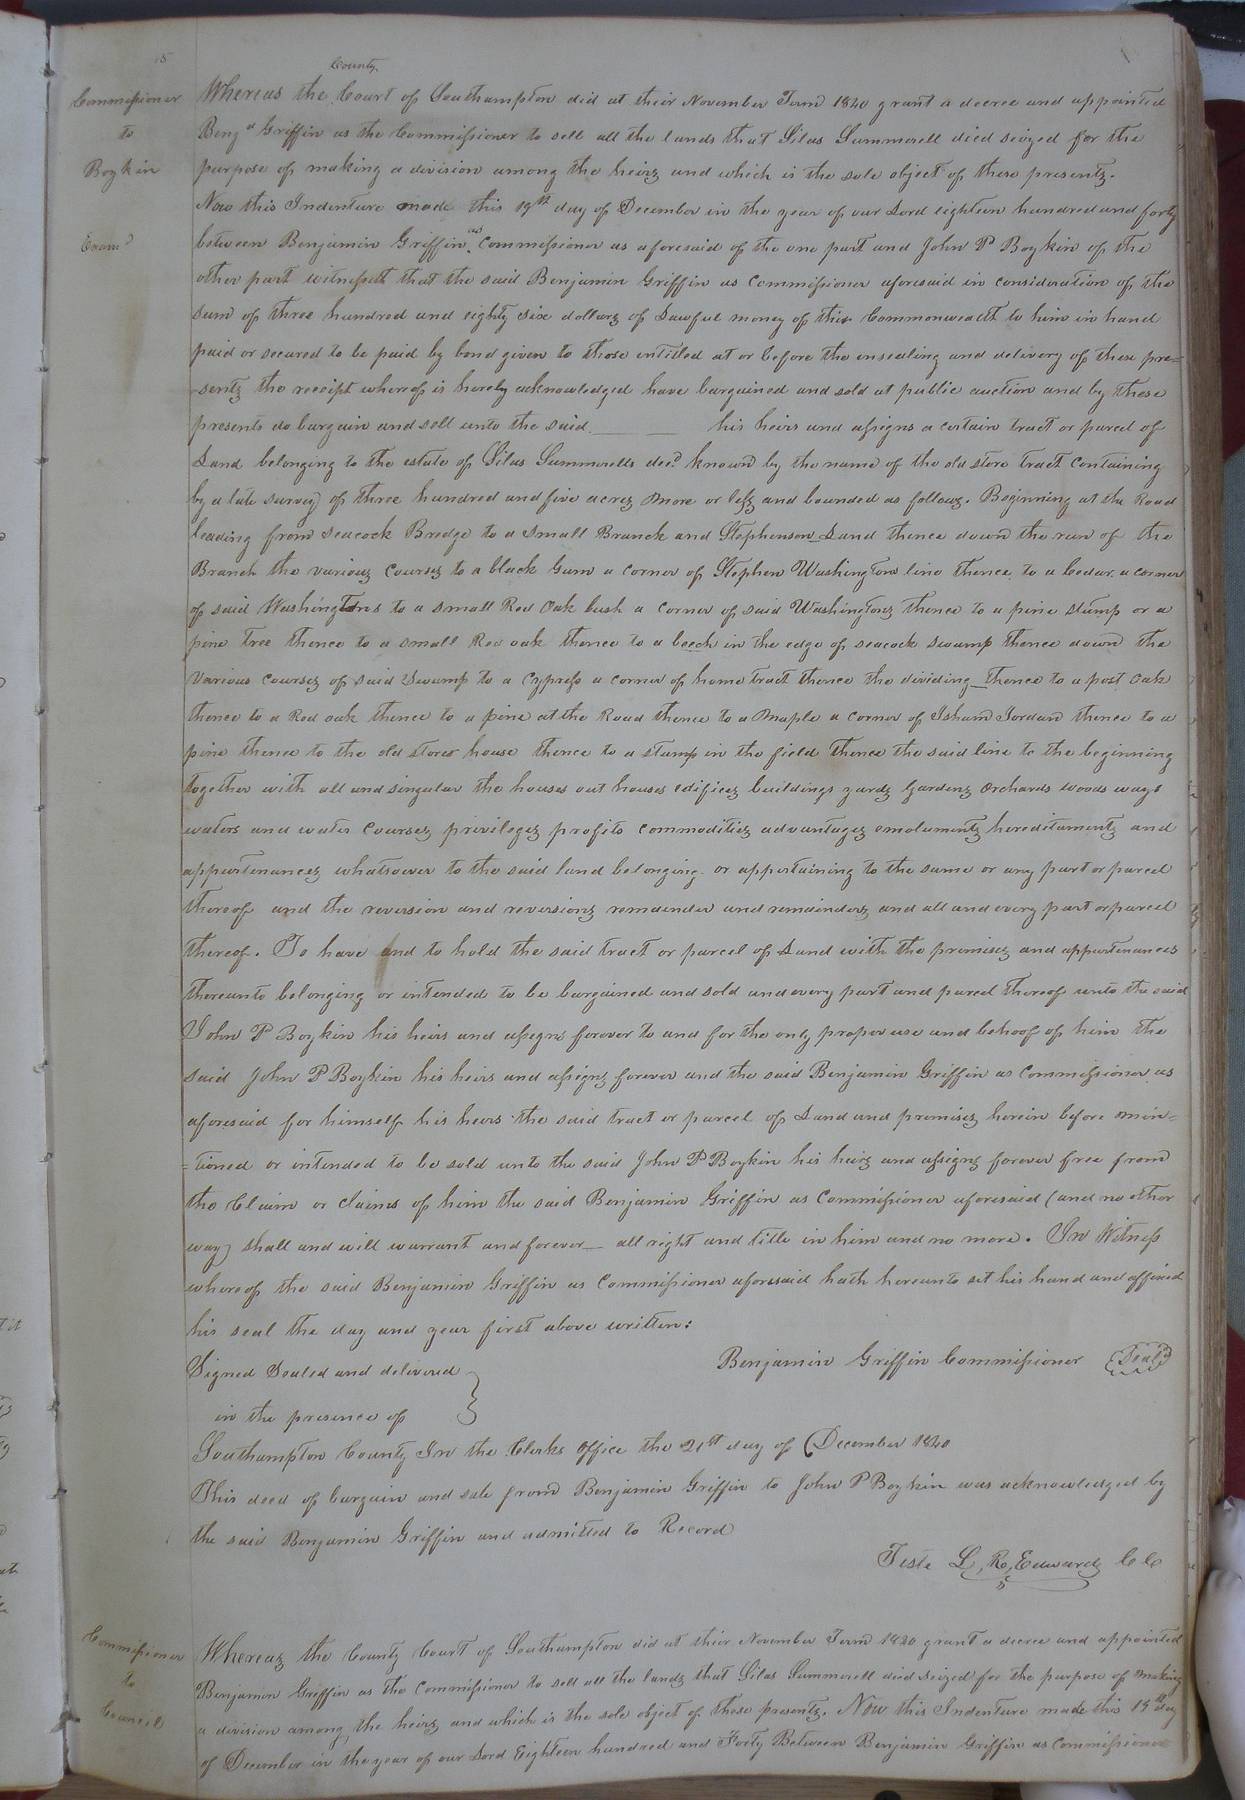 15
County
Commissioner
to
Boykin
Exam.d
Whereas the Court of Southampton did at their November Term 1840 grant a decree and appointed
Benj.a Griffin as the Commissioner to sell all the lands that Silas Summerell died seized for the
purpose of making a division among the heirs and which is the sole object of these presents.
Now this Indenture made this 19th day of December in the year of our Lord eighteen hundred and forty
between Benjamin Griffin as Commissioner as aforesaid of the one part and John P Boykin of the
other part witnesseth that the said Benjamin Griffin as Commissioner aforesaid in consideration of the
sum of three hundred and eighty six dollars of Lawful money of this Commonwealth to him in hand
paid or secured to be paid by bond given to those intitled at or before the ensealing and delivery of these pre=
-sents the receipt whereof is hereby acknowledged have bargained and sold at public auction and by these
presents do bargain and sell unto the said ___ ___ his heirs and assigns a certain tract or parcel of
Land belonging to the estate of Silas Summerells decd known by the name of the old store tract Containing
by a late survey of three hundred and five acres more or less and bounded as follows. Beginning at the Road
leading from Seacock Bredge to a Small Branch and Stephenson Land thence down the run of the
Branch the various Courses to a black Gum a Corner of Stephen Washingtons line thence to a Cedar a corner
of said Washingtons to a small Red Oak bush a Corner of said Washingtons thence to a pine stump or a
pine tree thence to a small Red oak thence to a beech in the edge of seacock swamp thence down the
Various Courses of said Swamp to a Cypress a corner of home tract thence the dividing thence to a post Oak
thence to a Red oak thence to a pine at the Road thence to a Maple a Corner of Isham Jordan thence to a
pine thence to the old store house thence to a stump in the field thence the said line to the beginning
together with all and singular the houses out houses edifices buildings yards Gardens Orchards woods ways
waters and water Courses privileges profits commodities advantages emoluments hereditaments and
appurtenances whatsoever to the said land belonging or appertaining to the same or any part or parcel
thereof and the reversion and reversions remainder and remainders and all and every part or parcel
thereof. To have and to hold the said tract or parcel of Land with the premises and appurtenances
thereunto belonging or intended to be bargained and sold and every part and parcel thereof unto the said
John P Boykin his heirs and assigns forever to and for the only proper use and behoof of him the
said John P Boykin his heirs and assigns forever and the said Benjamin Griffin as Commissioner as
aforesaid for himself his heirs the said tract or parcel of Land and premises herein before men=
=tioned or intended to be sold unto the said John P Boykin his heirs and assigns forever free from
the Claim or claims of him the said Benjamin Griffin as Commissioner aforesaid (and no other
way) shall and will warrant and forever all right and title in him and no more. In Witness
whereof the said Benjamin Griffin as Commissioner aforesaid hath hereunto set his hand and affixed
his seal the day and year first above written:
Signed Sealed and delivered } Benjamin Griffin Commissioner (Seal)
in the presence of
Southampton County In the Clerks Office the 21st day of December 1840
This deed of bargain and sale from Benjamin Griffin to John P Boykin was acknowledged by
the said Benjamin Griffin and admitted to Record
Teste L, R, Edwards C C
Commissioner
to
Council
Whereas the County Court of Southampton did at their November Term 1840 grant a decree and appointed
Benjamin Griffin as the Commissioner to sell all the lands that Silas Summerell died seized for the purpose of making
a division among the heirs and which is the sole object of these presents. Now this Indenture made this 19th day
of December in the year of our Lord Eighteen hundred and Forty Between Benjamin Griffin as Commissioner